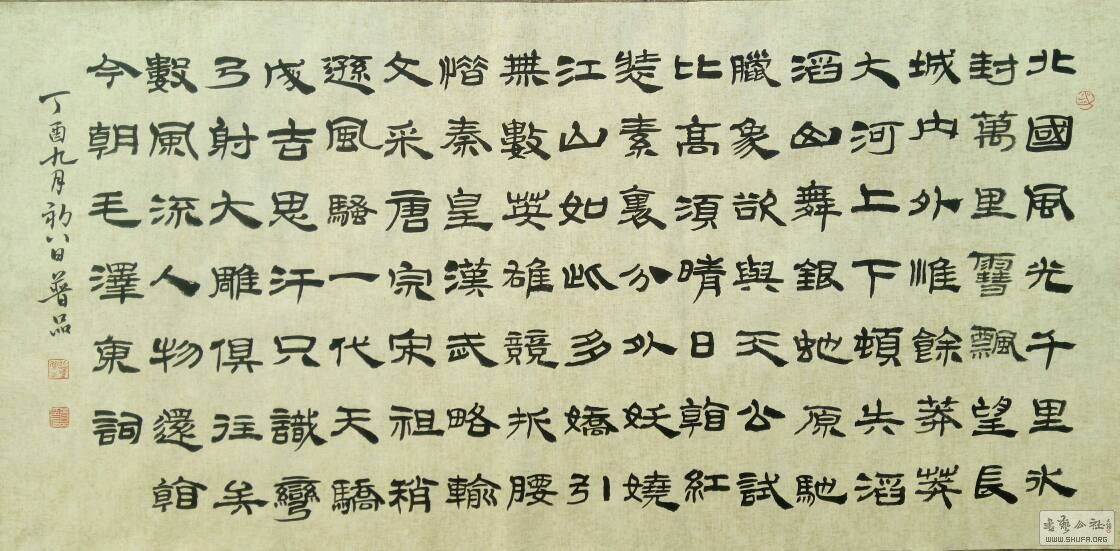 北國風光千里氷
封萬里雪飄望長
城內外惟餘莽莽
大河上下頓失滔
滔山舞銀蛇原馳
臘象欲與天公試
比高須晴日看紅
裝素裹分外妖嬈
江山如此多嬌引
無數英雄競折腰
惜秦皇漢武略輸
文采唐宗宋祖稍
遜風騷一代天驕
成吉思汗只識彎
弓射大雕俱往矣
數風流人物還看
今朝毛澤東詞
丁酉九月初八日普品
WWW.SHUFA.ORG